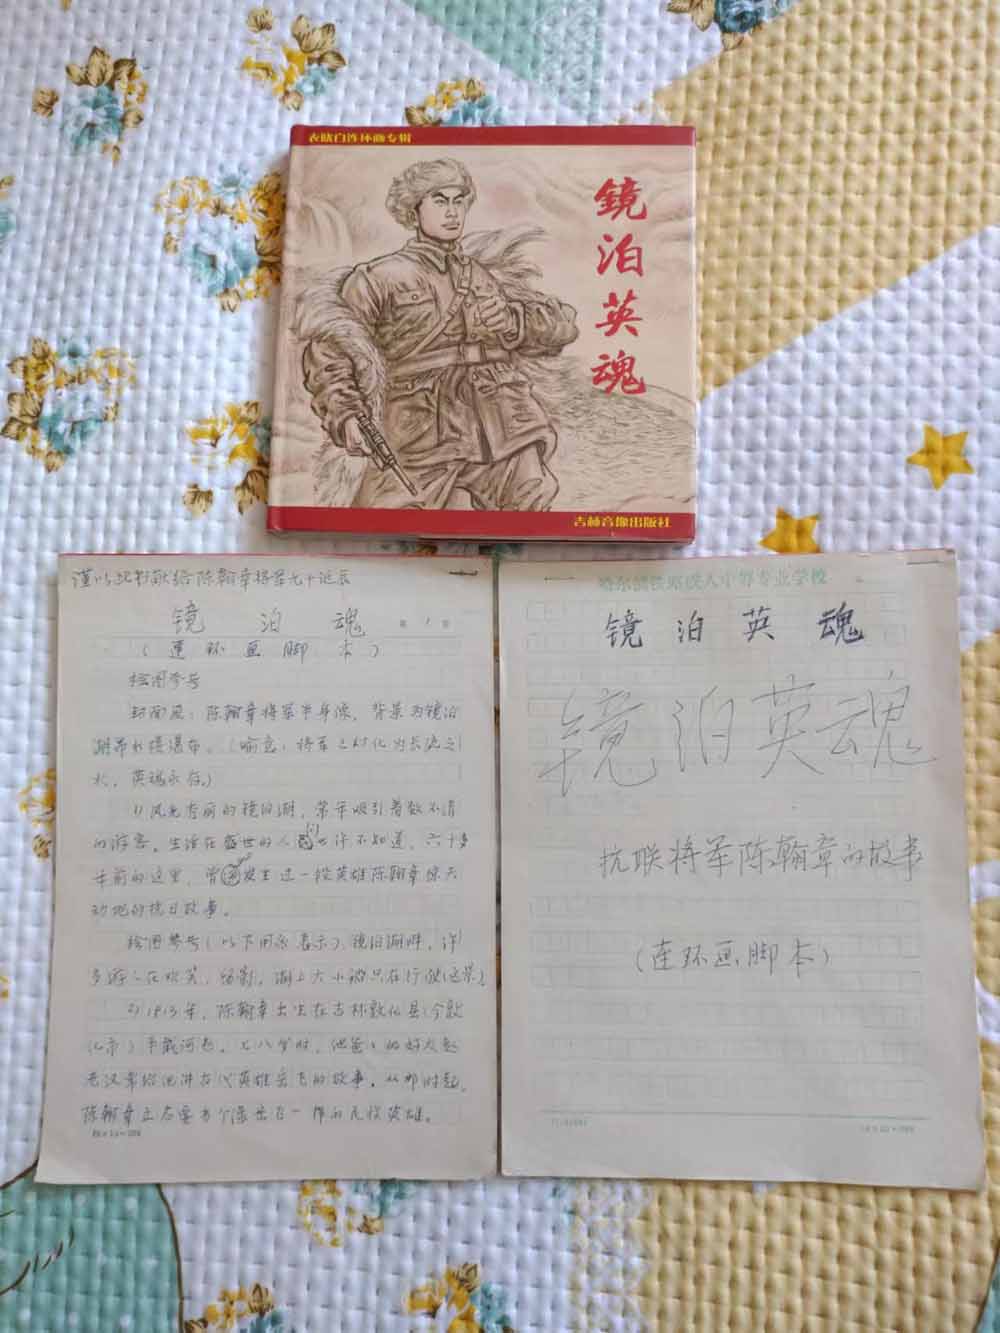 表胧白连环画专辑
鏡泊英魂
吉林音像出版社
谨以此书献给陈翰章将军九十诞辰
镜泊魂
第1页
(连环画脚本)
绘图参考
封面底:陈翰章将军半身像,背景为镜泊
湖吊水楼瀑布。(喻意:将军已对化为长流之
水,英魂永存。)
1)风光秀丽的镜泊湖,常年吸引着数不清
的游客。生活在盛世的人们也许不知道,六十多
年前的这里,曾发生过一段英雄陈翰章惊天
动地的抗日故事。
绘图参考(以下用※表示)镜泊湖畔,许
多游人在欢笑,留影,湖上大小船只在行驶(远景)
2)1913年,陈翰章出生在吉林敦化县(今敦
化市)半截河屯。七八岁时,他爸爸的好友赵
老汉常给他讲古代英雄岳飞的故事。从那时起,
陈翰章立志要当个像岳飞一样的民族英雄。
哈尔滨铁路成人中等专业学校
镜泊英魂
镜泊英魂
抗联将军陈翰章的故事
(连环画脚本)